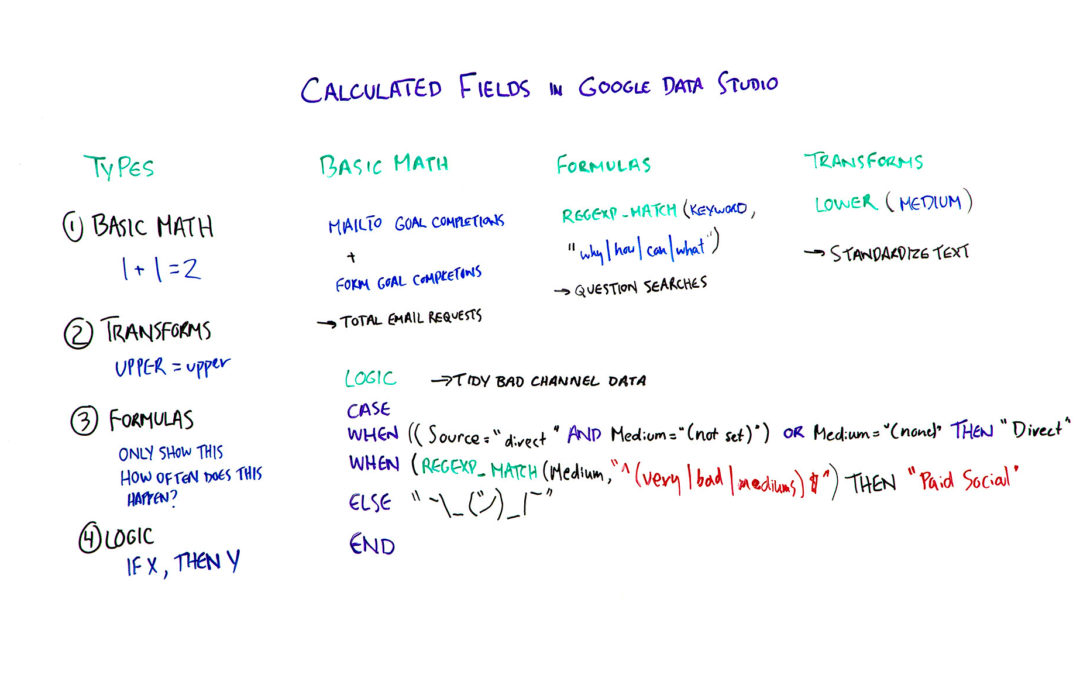 CALCULATED FIELDS IN GOOGLE DATA STUDIO
TYPES
① BASIC MATH
1 + 1 = 2
② TRANSFORMS
UPPER = upper
③ FORMULAS
ONLY SHOW THIS
HOW OFTEN DOES THIS
HAPPEN?
④ LOGIC
IF X, THEN Y
BASIC MATH
MAILTO GOAL COMPLETIONS
+
FORM GOAL COMPLETIONS
→ TOTAL EMAIL REQUESTS
FORMULAS
REGEXP_MATCH (KEYWORD,
"why|how|can|what")
→ QUESTION SEARCHES
TRANSFORMS
LOWER (MEDIUM)
→ STANDARDIZE TEXT
LOGIC → TIDY BAD CHANNEL DATA
CASE
WHEN ((Source="direct" AND Medium="(not set)") OR Medium="(none)" THEN "Direct"
WHEN (REGEXP_MATCH (Medium, "^(very|bad|mediums)$") THEN "Paid Social"
ELSE "¯\_(ツ)_/¯"
END